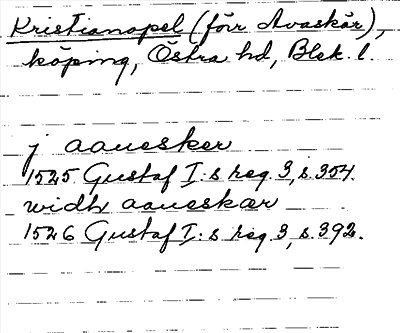 Kristianopel (förr Avaskär),
köping, Östra hd, Blek. l.
j aauesker
1525 Gustaf I:s reg. 3, s. 354.
widh aaueskær
1526 Gustaf I:s reg. 3, s. 392.